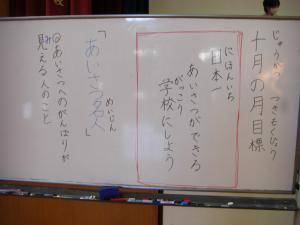 じゅうがつ つきもくひょう
十月の月目標
にほんいち
日本一
あいさつができる
がっこう
学校にしよう
めいじん
「あいさつ名人」
◎あいさつへのがんばりが
み
見える人のこと